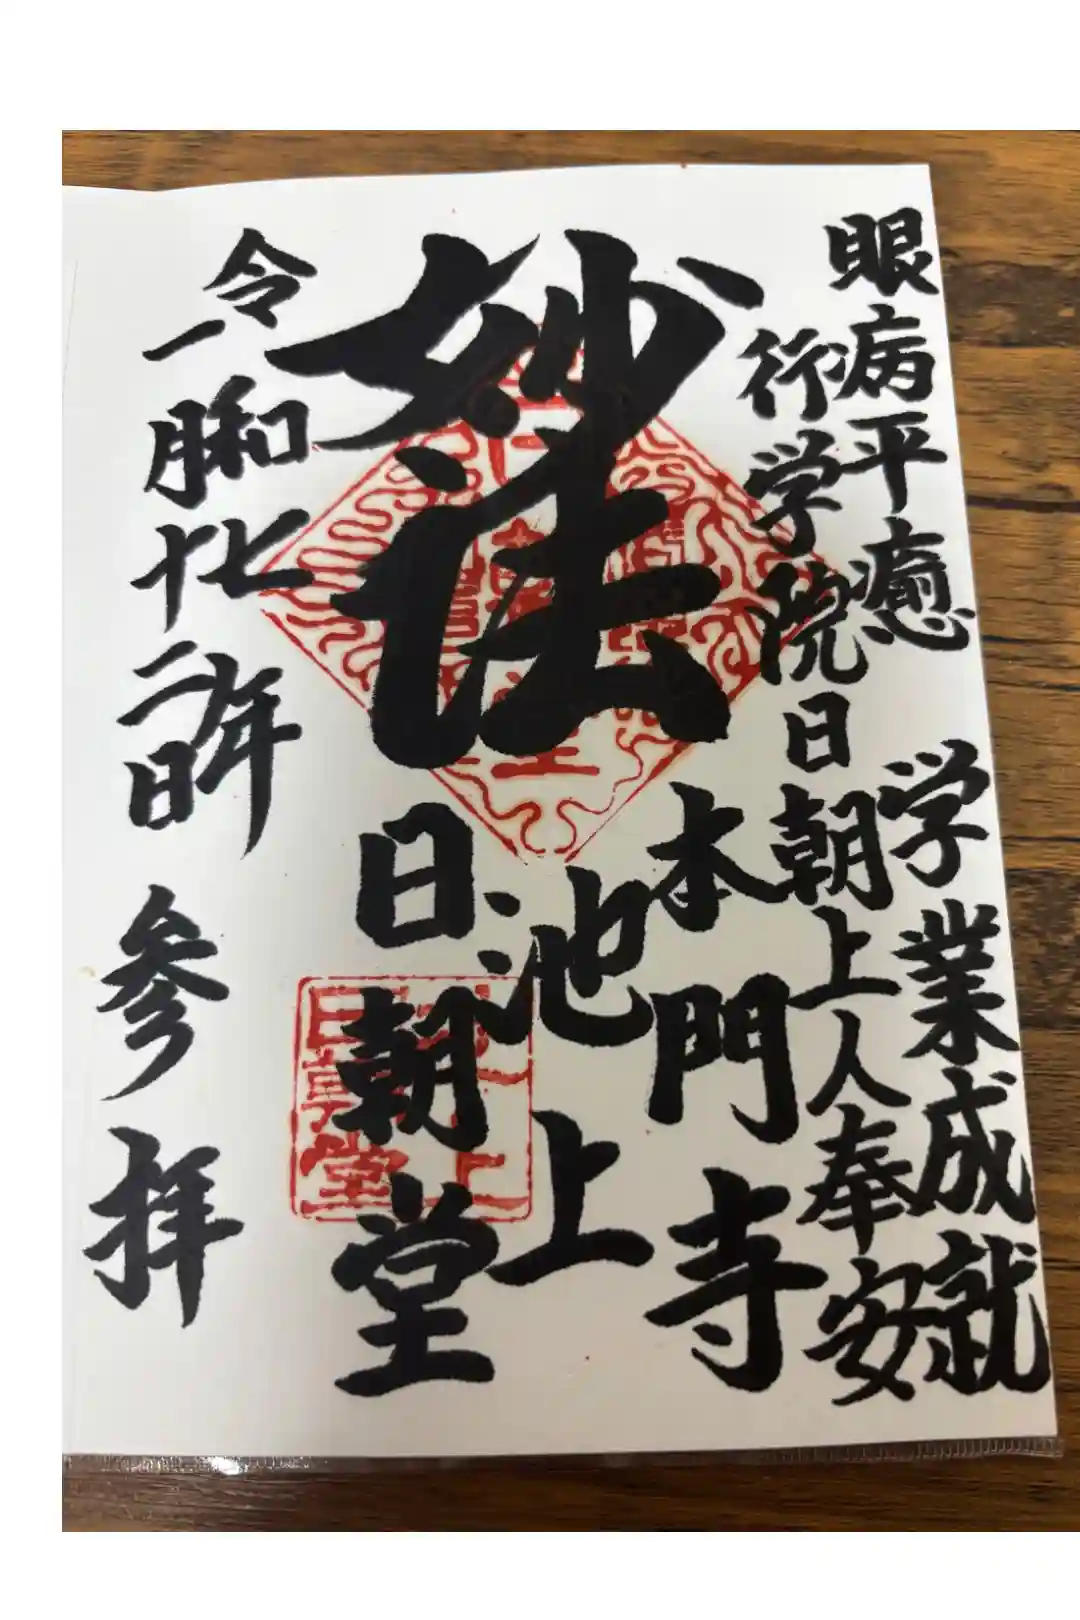 眼病平癒 学業成就
行学院日朝上人奉安
妙法
本門寺
池上
日朝堂
令和七年
一月十二日
参拝